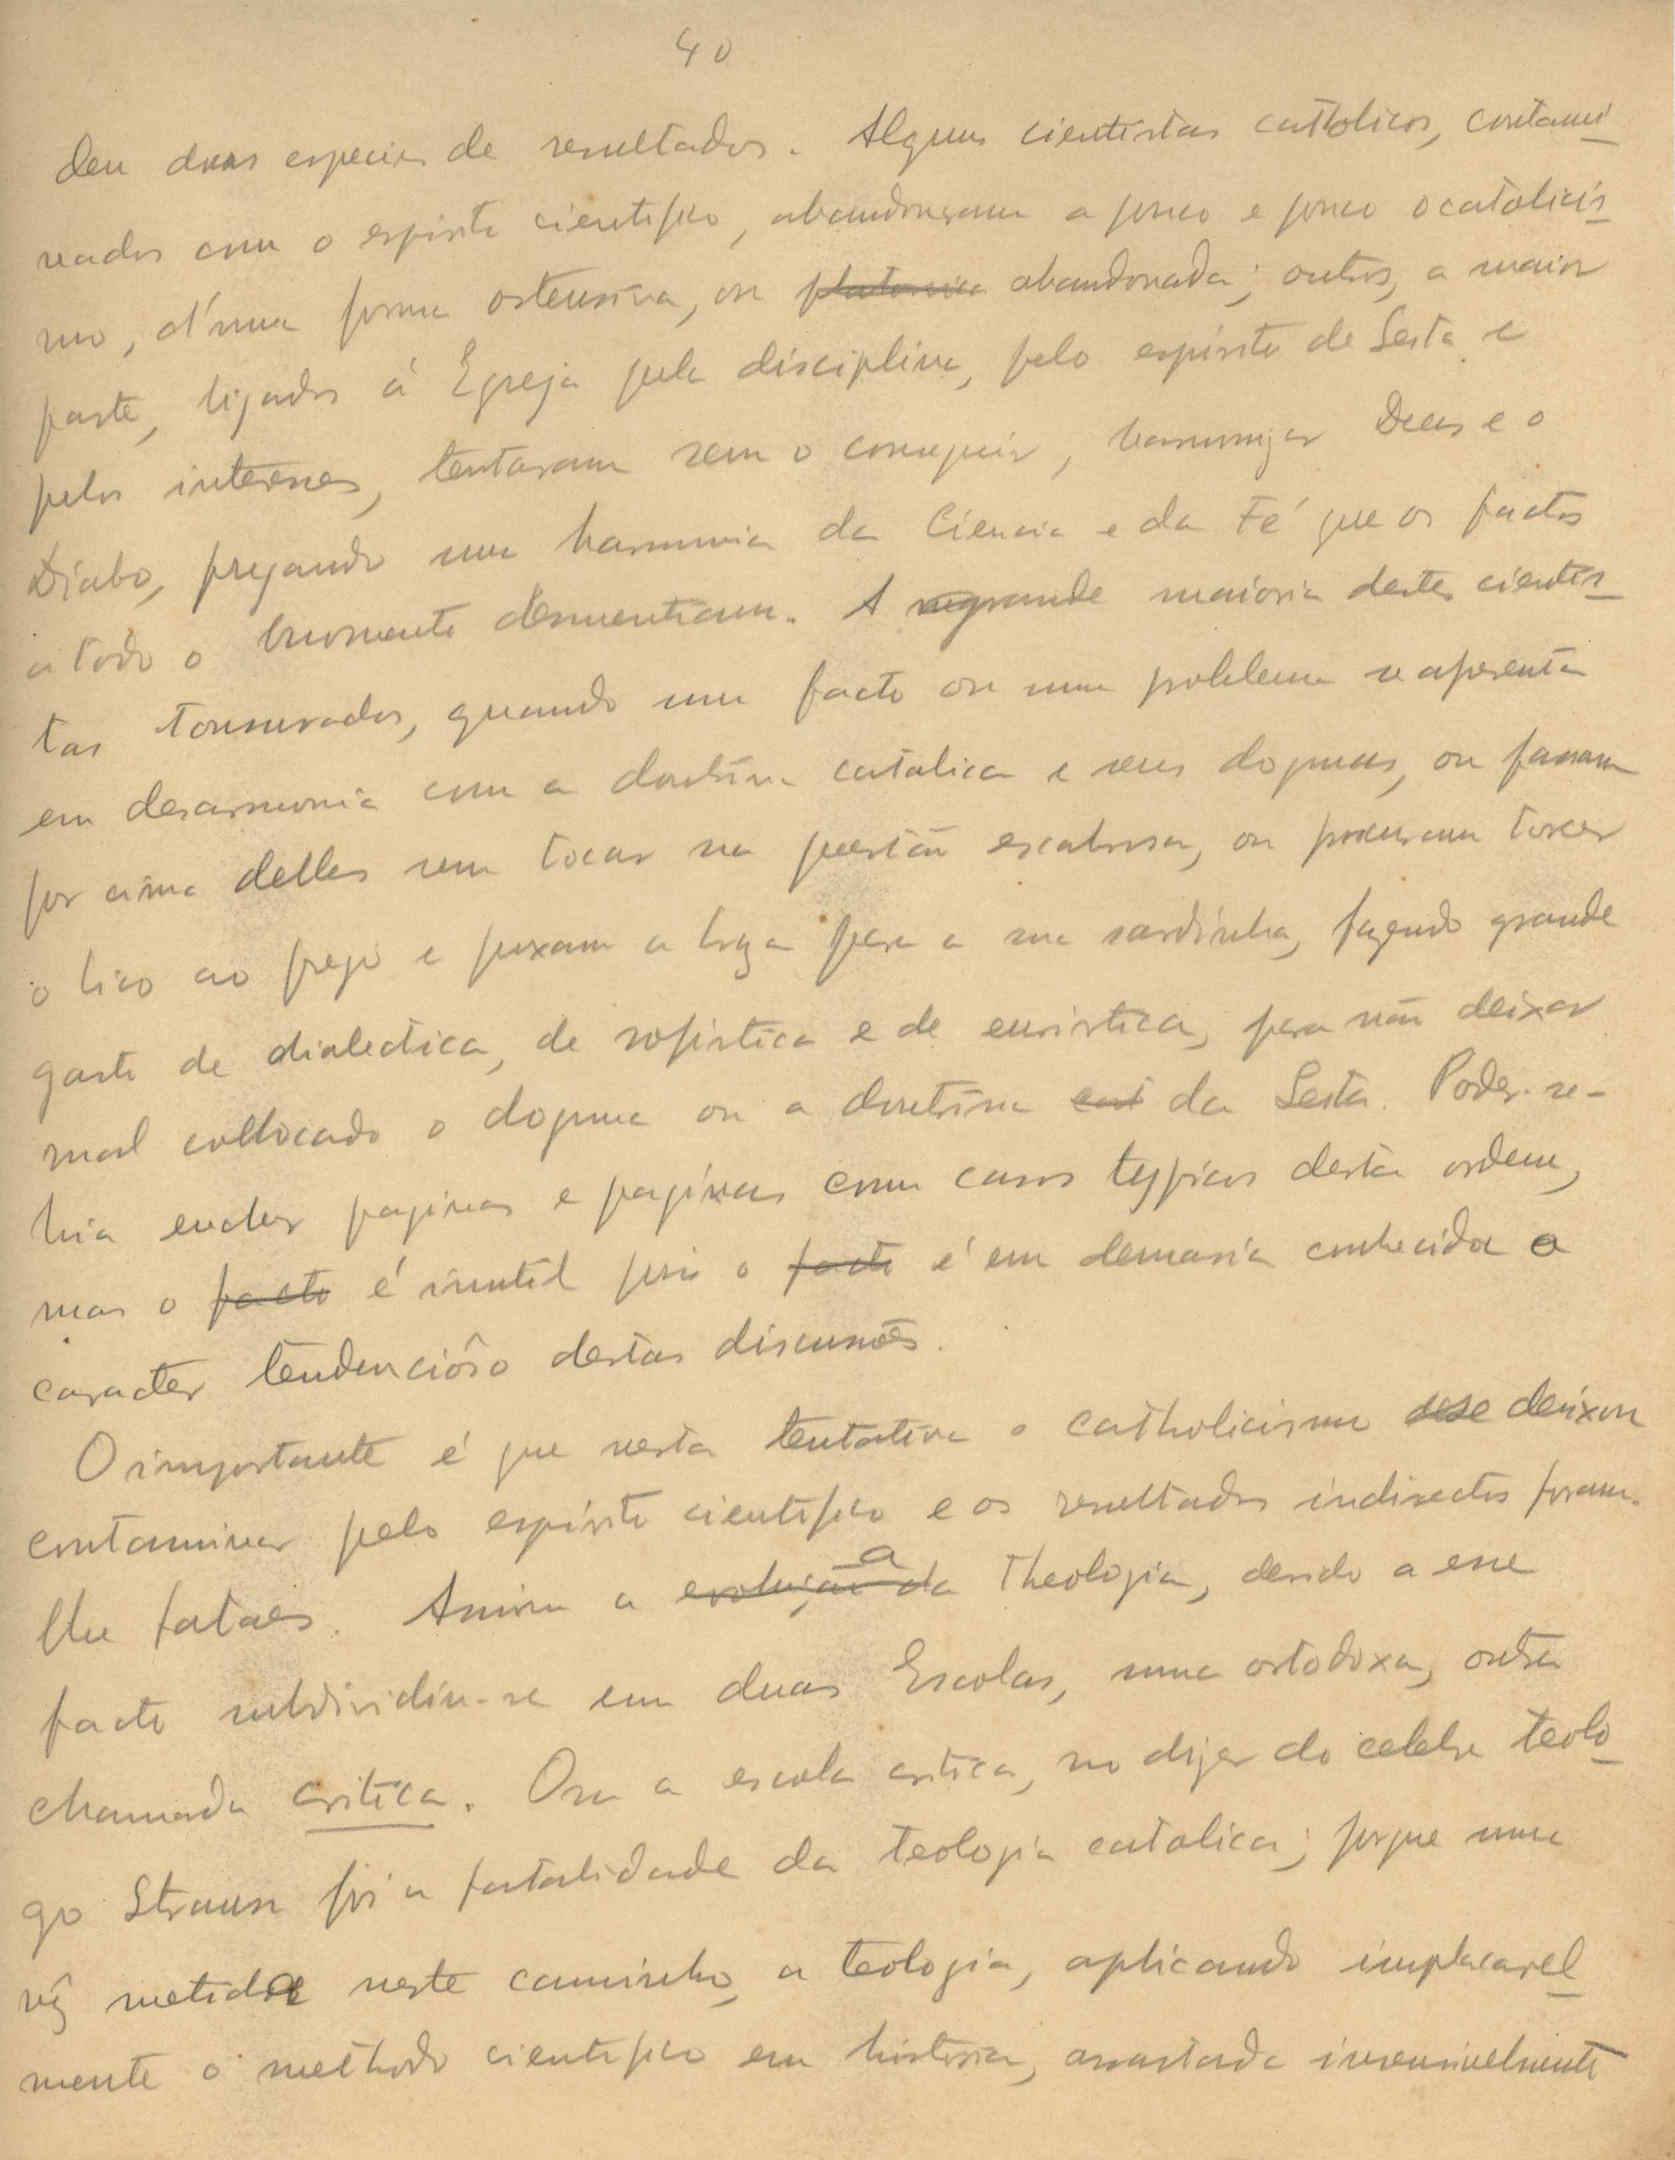 40
deu duas especies de resultados. Alguns cientistas catholicos, contami-
nados com o espirito cientifico, abandonaram a pouco e pouco o catolicis-
mo, d'uma forma ostensiva, ou platonica abandonada; outros, a maior
parte, ligados á Egreja pela disciplina, pelo espirito de Seita e
pelos interesses, tentaram sem o conseguir, harmonizar Deus e o
Diabo, pregando uma harmonia da Ciencia e da Fé que os factos
a todo o momento desmentiam. A grande maioria destes cientis-
tas tonsurados, quando um facto ou um problema se apresenta
em desarmonia com a doutrina catolica e seus dogmas, ou passam
por cima delles sem tocar na questão escabrosa, ou procuram torcer
o bico ao prego e puxam a braza para a sua sardinha, fazendo grande
gasto de dialectica, de sofistica e de euristica, para não deixar
mal collocado o dogma ou a doutrina cat da Seita. Poder-se-
hia encher paginas e paginas com casos typicos desta ordem,
mas o facto é inutil pois o facto é em demasia conhecido o
caracter tendenciôso destas discussões.
O importante é que nesta tentativa o catholicismo se deixou
contaminar pelo espirito cientifico e os resultados indirectos foram-
lhe fataes. Assim a evolução da a Theologia, devido a esse
facto subdividiu-se em duas Escolas, uma ortodoxa, outra
chamada critica. Ora a escola critica, no dizer do celebre teolo-
go Strauss foi a fatalidade da teologia catolica; porque uma
vêz metida neste caminho, a teologia, aplicando implacavel-
mente o methodo cientifico em historia, arrastada insensivelmente